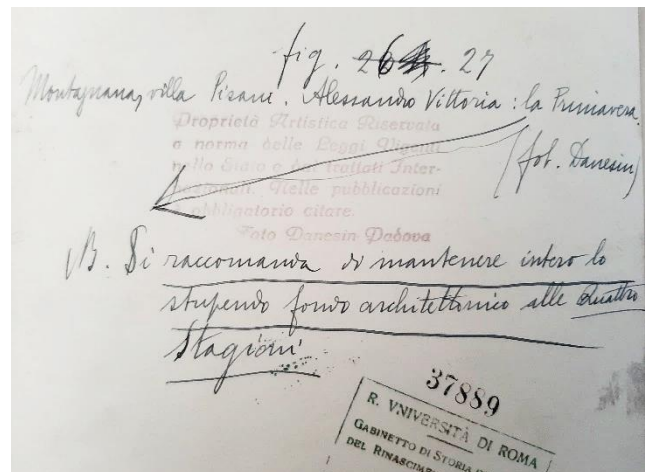 fig. 26 . 27
Montagnana, villa Pisani. Alessandro Vittoria: la Primavera.
(fot. Danesin)
Proprietà Artistica Riservata
a norma delle Leggi Vigenti
nello Stato e dai trattati Inter-
nazionali. Nelle pubblicazioni
è obbligatorio citare.
Foto Danesin Padova
NB. Si raccomanda di mantenere intero lo
stupendo fondo architettonico alle Quattro
Stagioni
37889
R. VNIVERSITÀ DI ROMA
GABINETTO DI STORIA
DEL